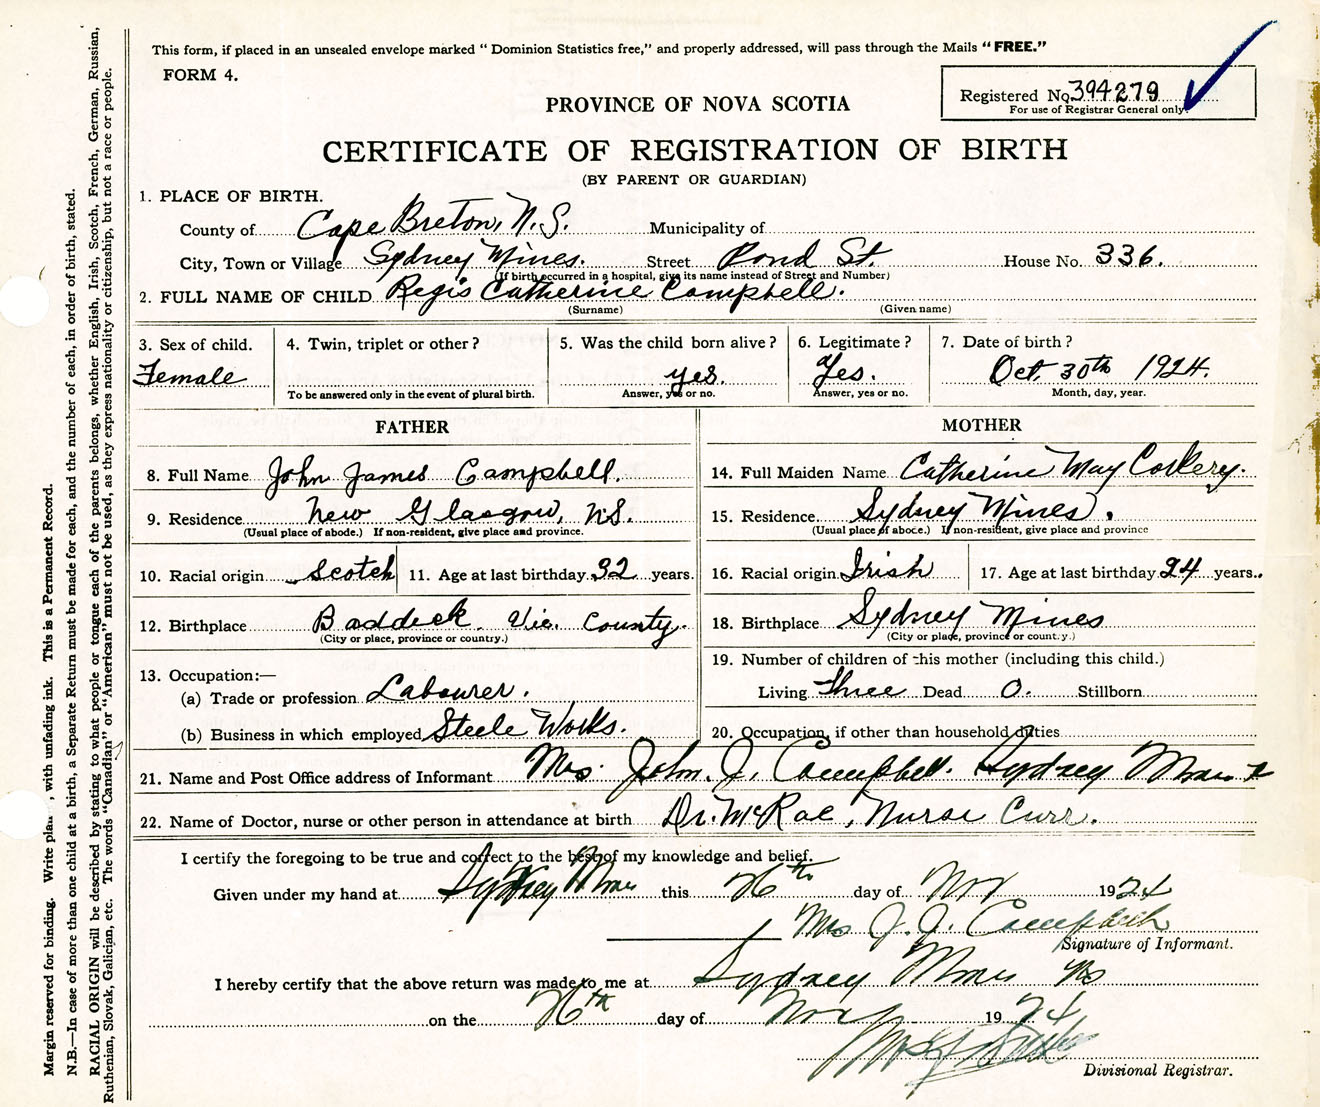 This form, if placed in an unsealed envelope marked "Dominion Statistics free," and properly addressed, will pass through the Mails "FREE."
FORM 4.
Registered No. 394279
For use of Registrar General only
PROVINCE OF NOVA SCOTIA
CERTIFICATE OF REGISTRATION OF BIRTH
(BY PARENT OR GUARDIAN)
1. PLACE OF BIRTH.
County of Cape Breton, N.S. Municipality of
City, Town or Village Sydney Mines. Street Pond St. House No. 336.
(If birth occurred in a hospital, give its name instead of Street and Number)
2. FULL NAME OF CHILD Regis Catherine Campbell.
(Surname) (Given name)
3. Sex of child. 4. Twin, triplet or other? 5. Was the child born alive? 6. Legitimate? 7. Date of birth?
Female yes. Yes. Oct. 30th 1924.
To be answered only in the event of plural birth. Answer, yes or no. Answer, yes or no. Month, day, year.
FATHER MOTHER
8. Full Name John James Campbell. 14. Full Maiden Name Catherine May Corkery.
9. Residence New Glasgow, N.S. 15. Residence Sydney Mines.
(Usual place of abode.) If non-resident, give place and province. (Usual place of abode.) If non-resident, give place and province
10. Racial origin Scotch 11. Age at last birthday 32 years. 16. Racial origin Irish 17. Age at last birthday 24 years.
12. Birthplace Baddeck Vic. County. 18. Birthplace Sydney Mines
(City or place, province or country.) (City or place, province or country.)
13. Occupation:— 19. Number of children of this mother (including this child.)
(a) Trade or profession Labourer. Living Three Dead 0. Stillborn
(b) Business in which employed Steele Works. 20. Occupation, if other than household duties
21. Name and Post Office address of Informant Mrs. John. J. Campbell. Sydney Mines
22. Name of Doctor, nurse or other person in attendance at birth Dr. McRae, Nurse Curr.
I certify the foregoing to be true and correct to the best of my knowledge and belief.
Given under my hand at Sydney Mines this 26th day of Nov 1924
Mrs J. J. Campbell
Signature of Informant.
I hereby certify that the above return was made to me at Sydney Mines NS
on the 26th day of Nov 1924
Divisional Registrar.
Margin reserved for binding. Write plain, with unfading ink. This is a Permanent Record.
N.B.—In case of more than one child at a birth, a Separate Return must be made for each, and the number of each, in order of birth, stated.
RACIAL ORIGIN will be described by stating to what people or tongue each of the parents belongs, whether English, Irish, Scotch, French, German, Russian,
Ruthenian, Slovak, Galician, etc. The words "Canadian" or "American" must not be used, as they express nationality or citizenship, but not a race or people.